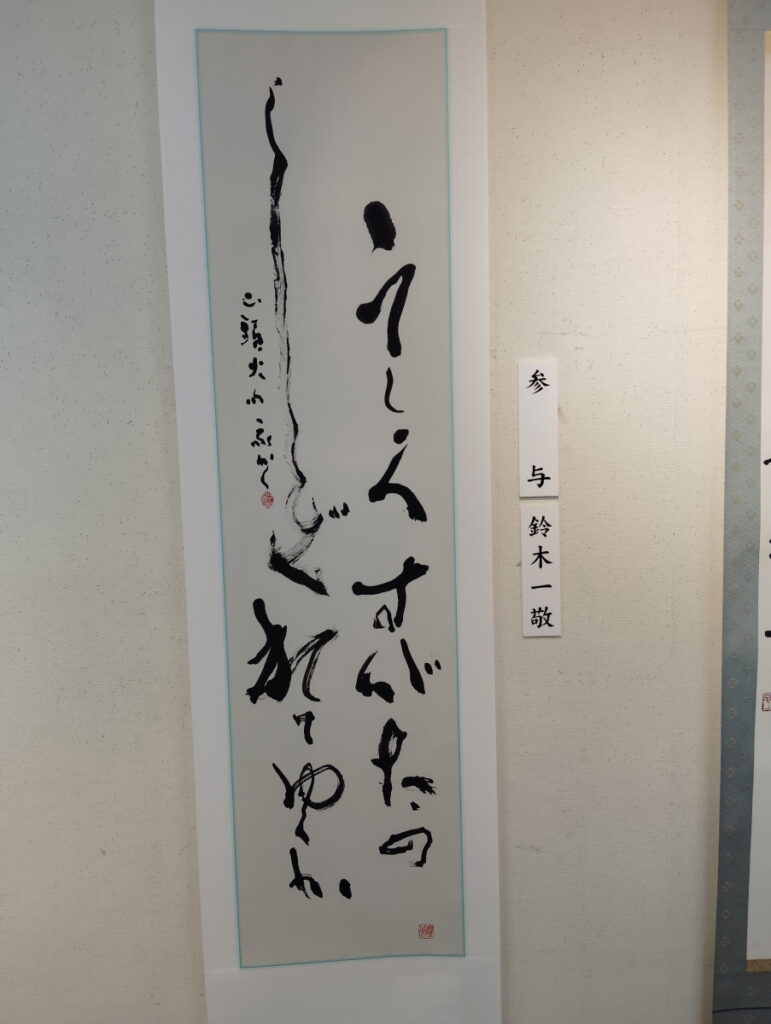 うしろすがたの
しぐれてゆくか
山頭火
参与
鈴木一敬